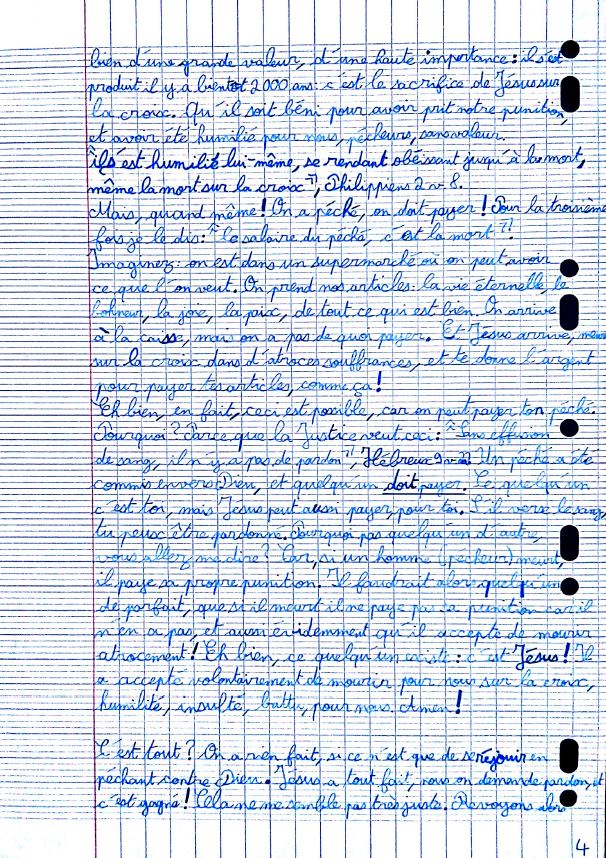 bien d'une grande valeur, d'une haute importance : il s'est
produit il y a bientot 2000 ans : c'est le sacrifice de Jésus sur
la croix. Qu'il soit béni pour avoir prit notre punition,
et avoir été humilié pour nous, pécheurs, sans valeur.
"il s'est humilié lui-même, se rendant obéissant jusqu'à la mort,
même la mort sur la croix", Philippiens 2 v 8.
Mais, quand même ! On a péché, on doit payer ! Pour la troisième
fois je le dis : "le salaire du péché, c'est la mort"!
Imaginez : on est dans un supermarché où on peut avoir
ce que l'on veut. On prend nos articles : la vie éternelle, le
bohneur, la joie, la paix, de tout ce qui est bien. On arrive
à la caisse, mais on a pas de quoi payer. Et Jésus arrive, meurt
sur la croix dans d'atroces souffrances, et te donne l'argent
pour payer tes articles, comme ça !
Eh bien, en fait, ceci est possible, car on peut payer ton péché.
Pourquoi ? Parce que la Justice veut ceci : "Sans effusion
de sang, il n'y a pas de pardon", Hébreux 9 v 22 Un péché a été
commis envers Dieu, et quelqu'un doit payer. Ce quelqu'un
c'est toi, mais Jésus peut aussi payer, pour toi. S'il verse le sang,
tu peux être pardonné. Pourquoi pas quelqu'un d'autre,
vous allez me dire ? Car, si un homme (pécheur) meurt,
il paye sa propre punition. Il faudrait alors quelqu'un
de parfait, que si il meurt il ne paye pas sa punition car il
n'en a pas, et aussi évidemment qu'il accepte de mourir
atrocement ! Eh bien, ce quelqu'un existe : c'est Jésus ! Il
a accepté volontairement de mourir pour nous sur la croix,
humilié, insulté, battu, pour nous. Amen !
C'est tout ? On a rien fait, si ce n'est que de se réjouir en
péchant contre Dieu. Jésus a tout fait, nous on demande pardon, et
c'est gagné ! Cela ne me semble pas très juste. Revoyons alors
4